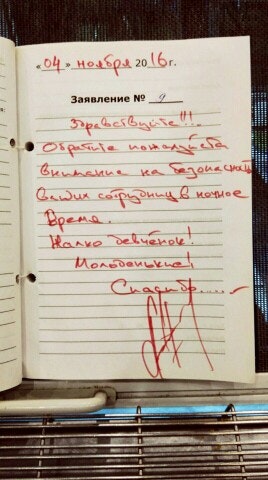 «04» ноября 2016 г.
Заявление № 9
Здравствуйте!!!
Обратите пожалуйста
внимание на безопасность
Ваших сотрудниц в ночное
Время.
Жалко девчёнок!
Молоденькие!
Спасибо.....